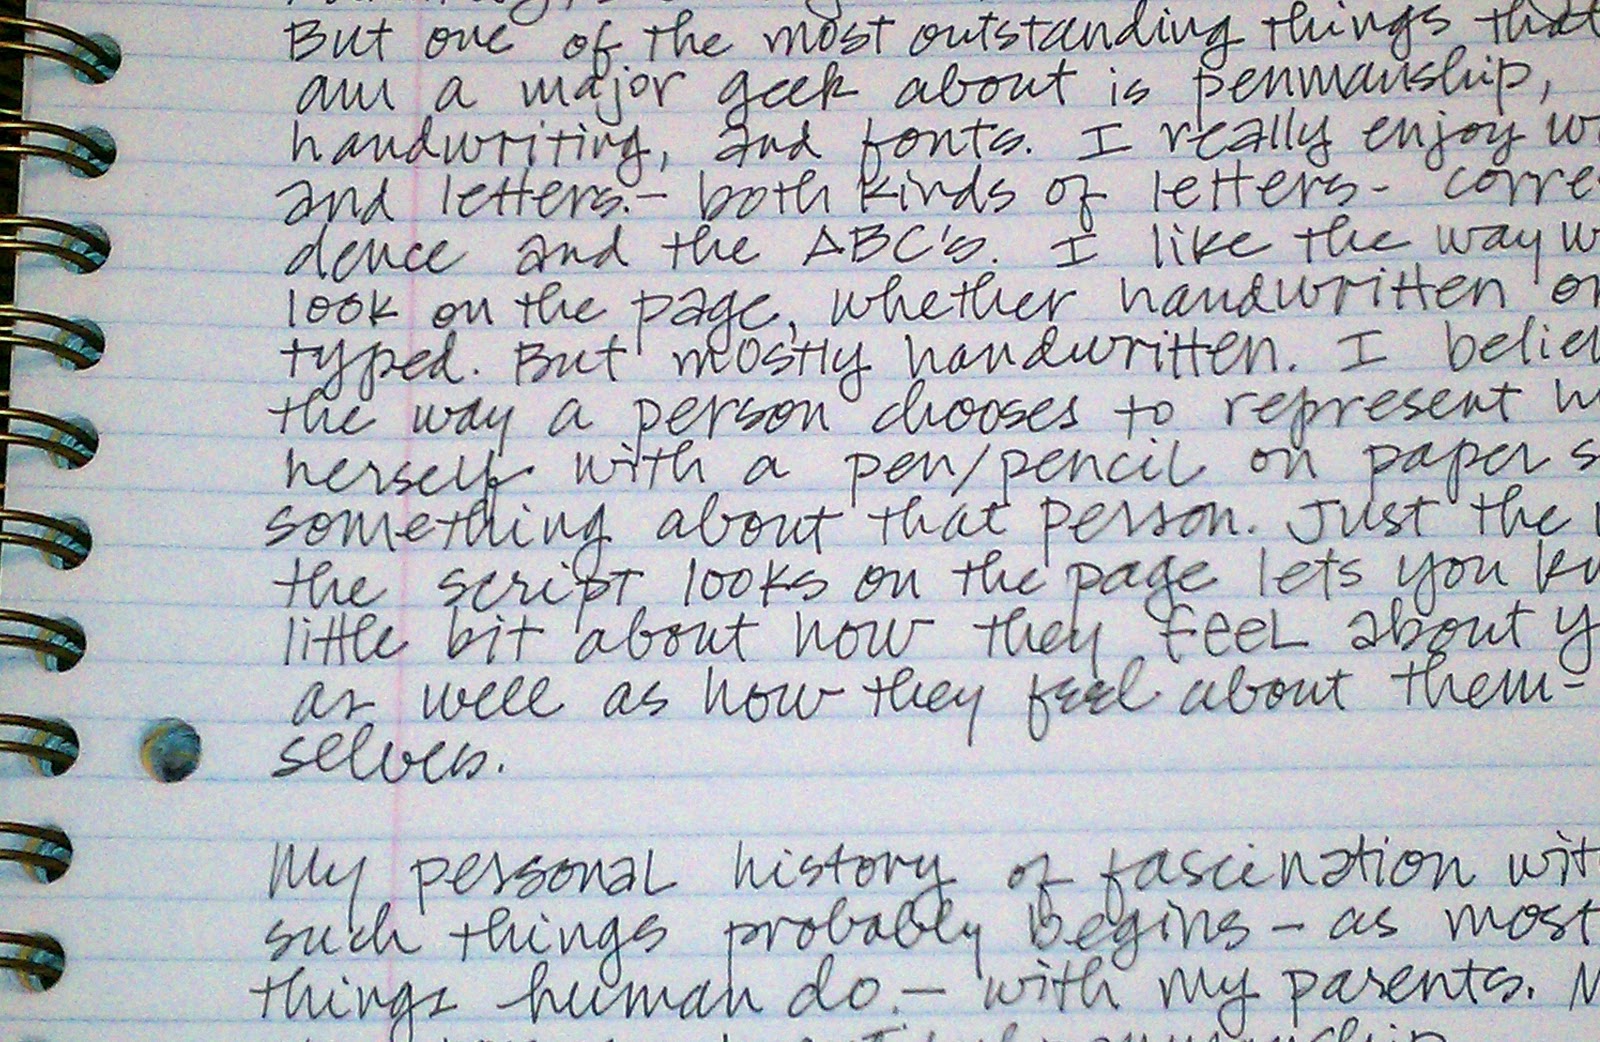 But one of the most outstanding things that
am a major geek about is penmanship,
handwriting, and fonts. I really enjoy
and letters.- both kinds of letters- corre
dence and the ABC's. I like the way
look on the page, whether handwritten or
typed. But mostly handwritten. I belie
the way a person chooses to represent
herself with a pen/pencil on paper s
something about that person. Just the
the script looks on the page lets you
little bit about how they feel about y
as well as how they feel about them-
selves.
My personal history of fascination wit
such things probably begins - as most
things human do. - with my parents.